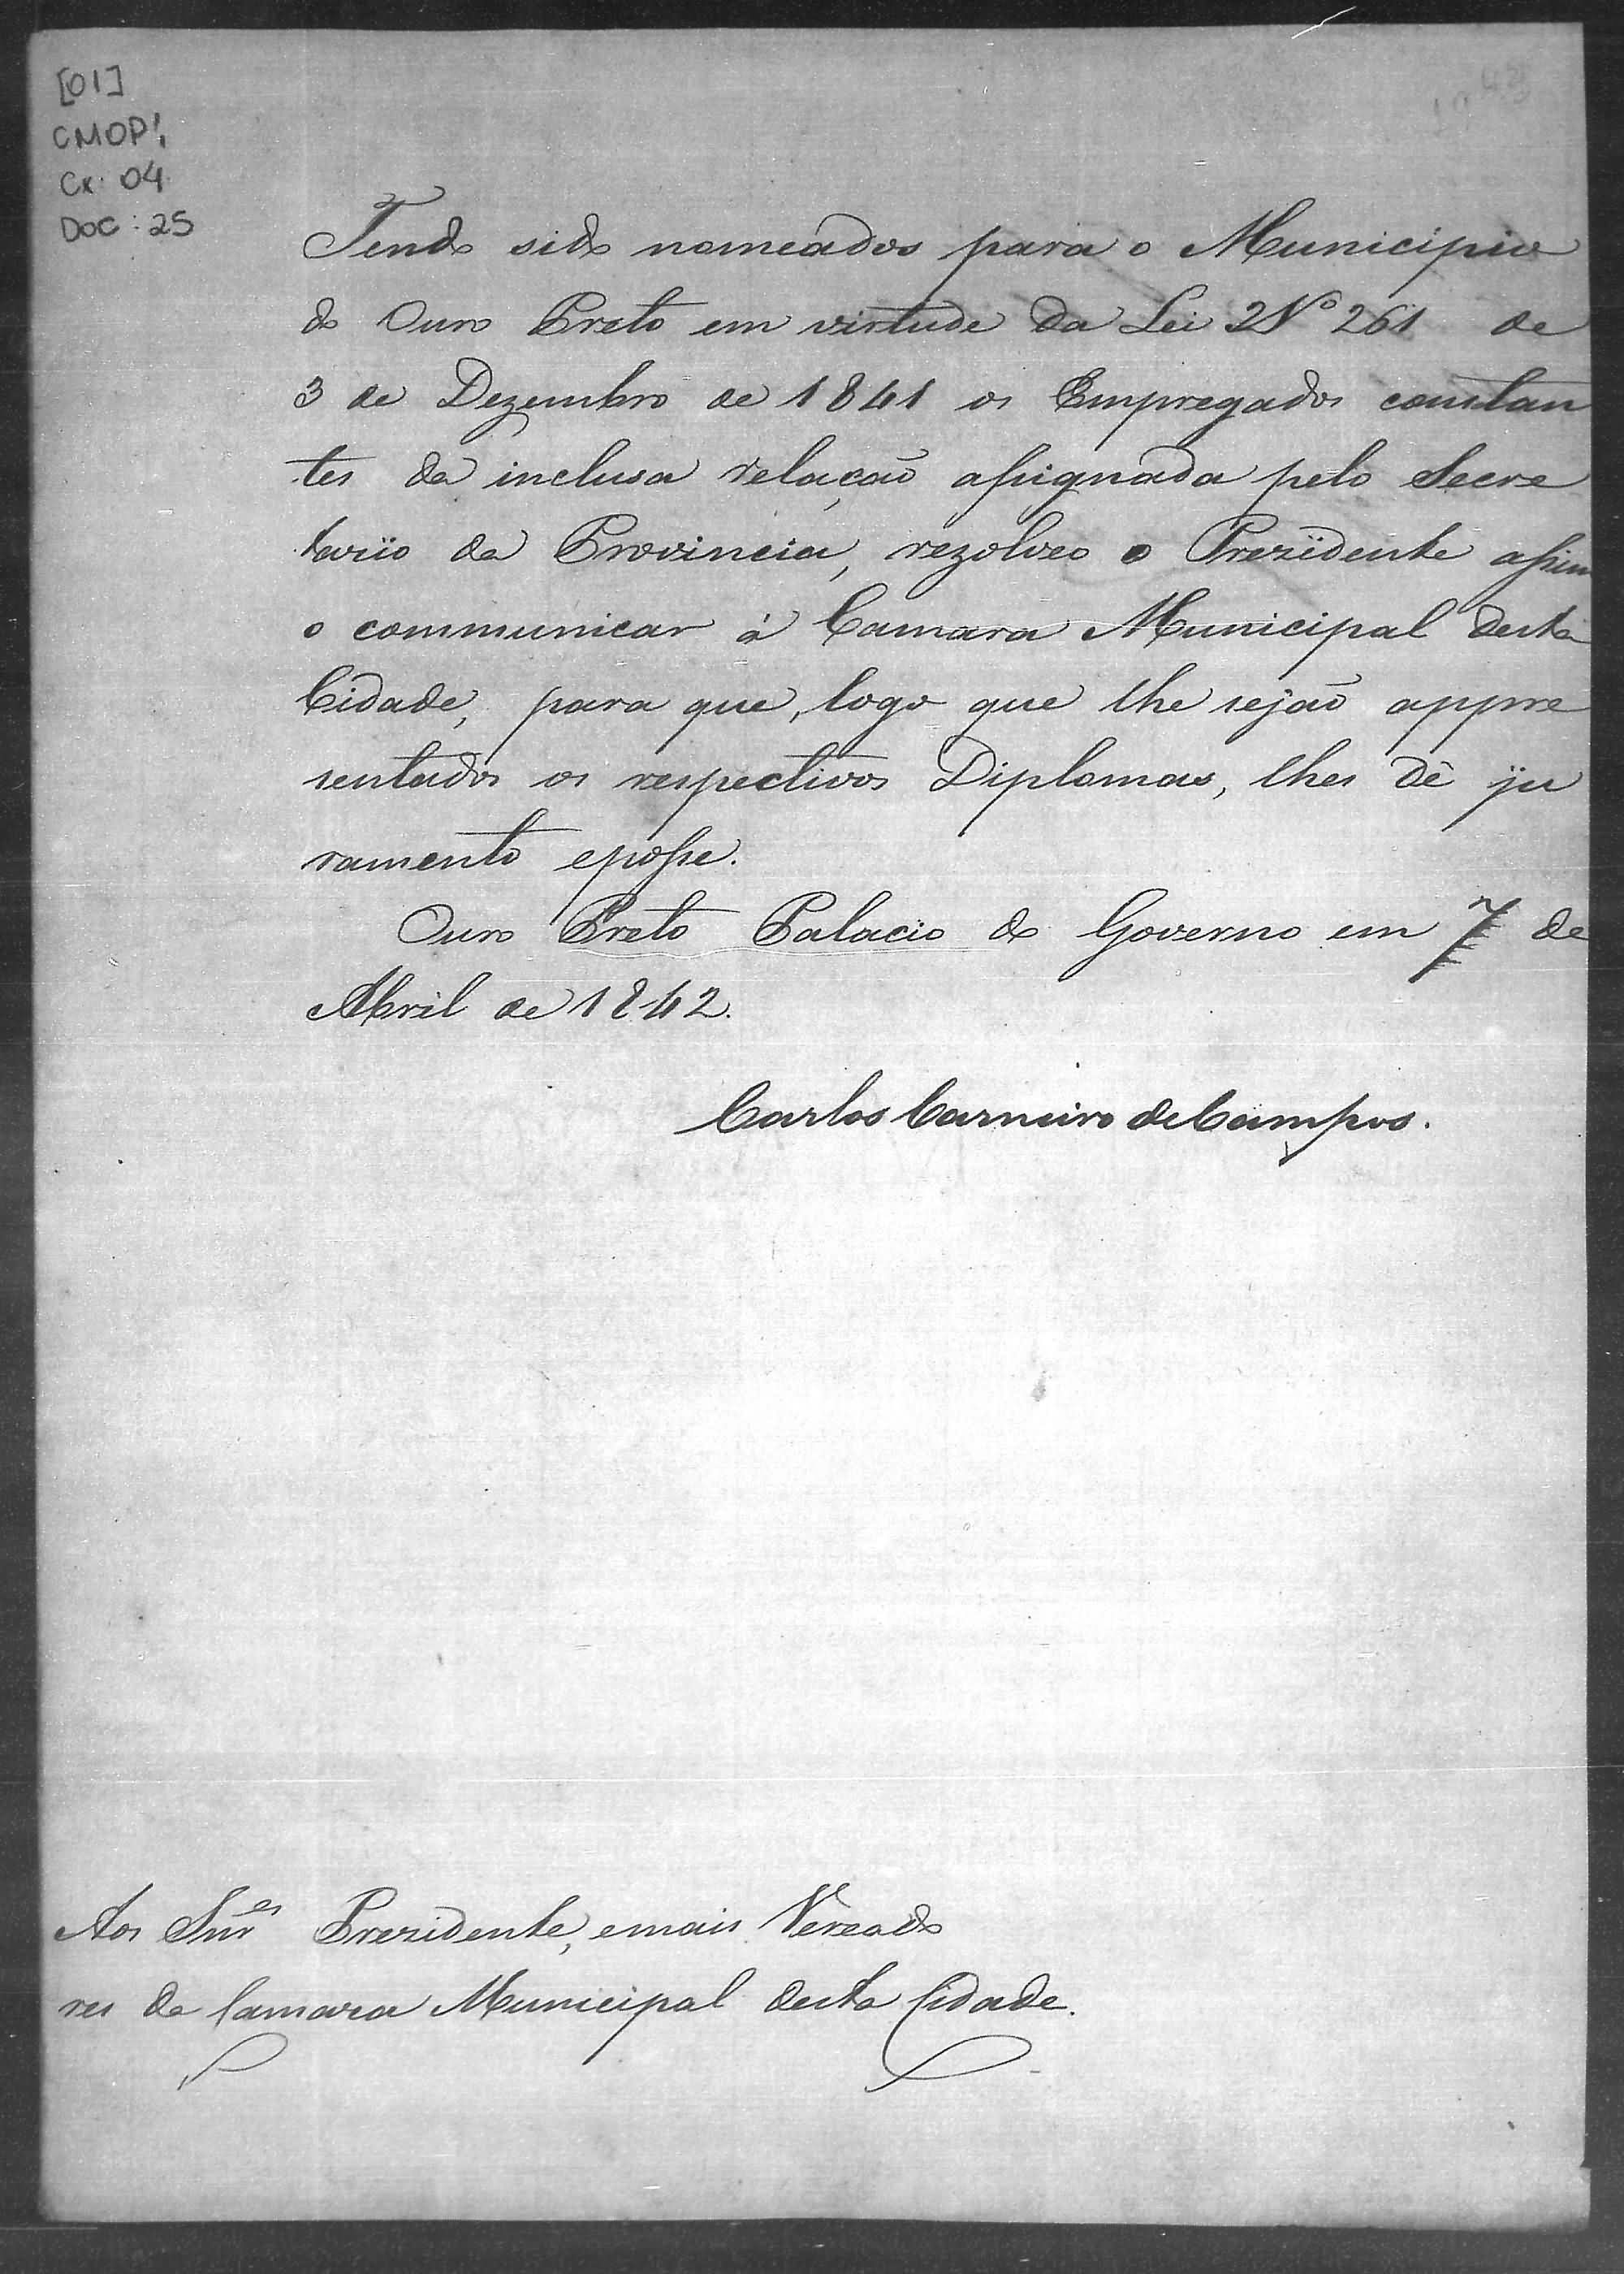 [01]
CMOP1,
Cx: 04
Doc: 25
Tendo sido nomeados para o Municipio
do Ouro Preto em virtude da Lei N.º 261 de
3 de Dezembro de 1841 os Empregados constan
tes da inclusa relação assignada pelo Secre
tario da Provincia, rezolveo o Prezidente assim
o communicar á Camara Municipal desta
Cidade, para que, logo que lhe sejão appre
sentados os respectivos Diplomas, lhes dê ju
ramento eposse.
Ouro Preto Palacio do Governo em 7 de
Abril de 1842.
Carlos Carneiro deCampos.
Aos Snr.es Prezidente, emais Vereado
res da Camara Municipal desta Cidade.